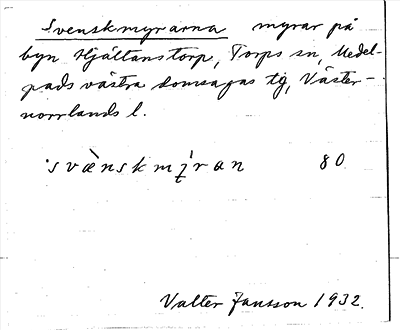 Svenskmyrarna myrar på
byn Hjältanstorp, Torps sn, Medel-
pads västra domsagas tg, Väster-
norrlands l.
svæ̀nskmýran 80
Valter Jansson 1932.